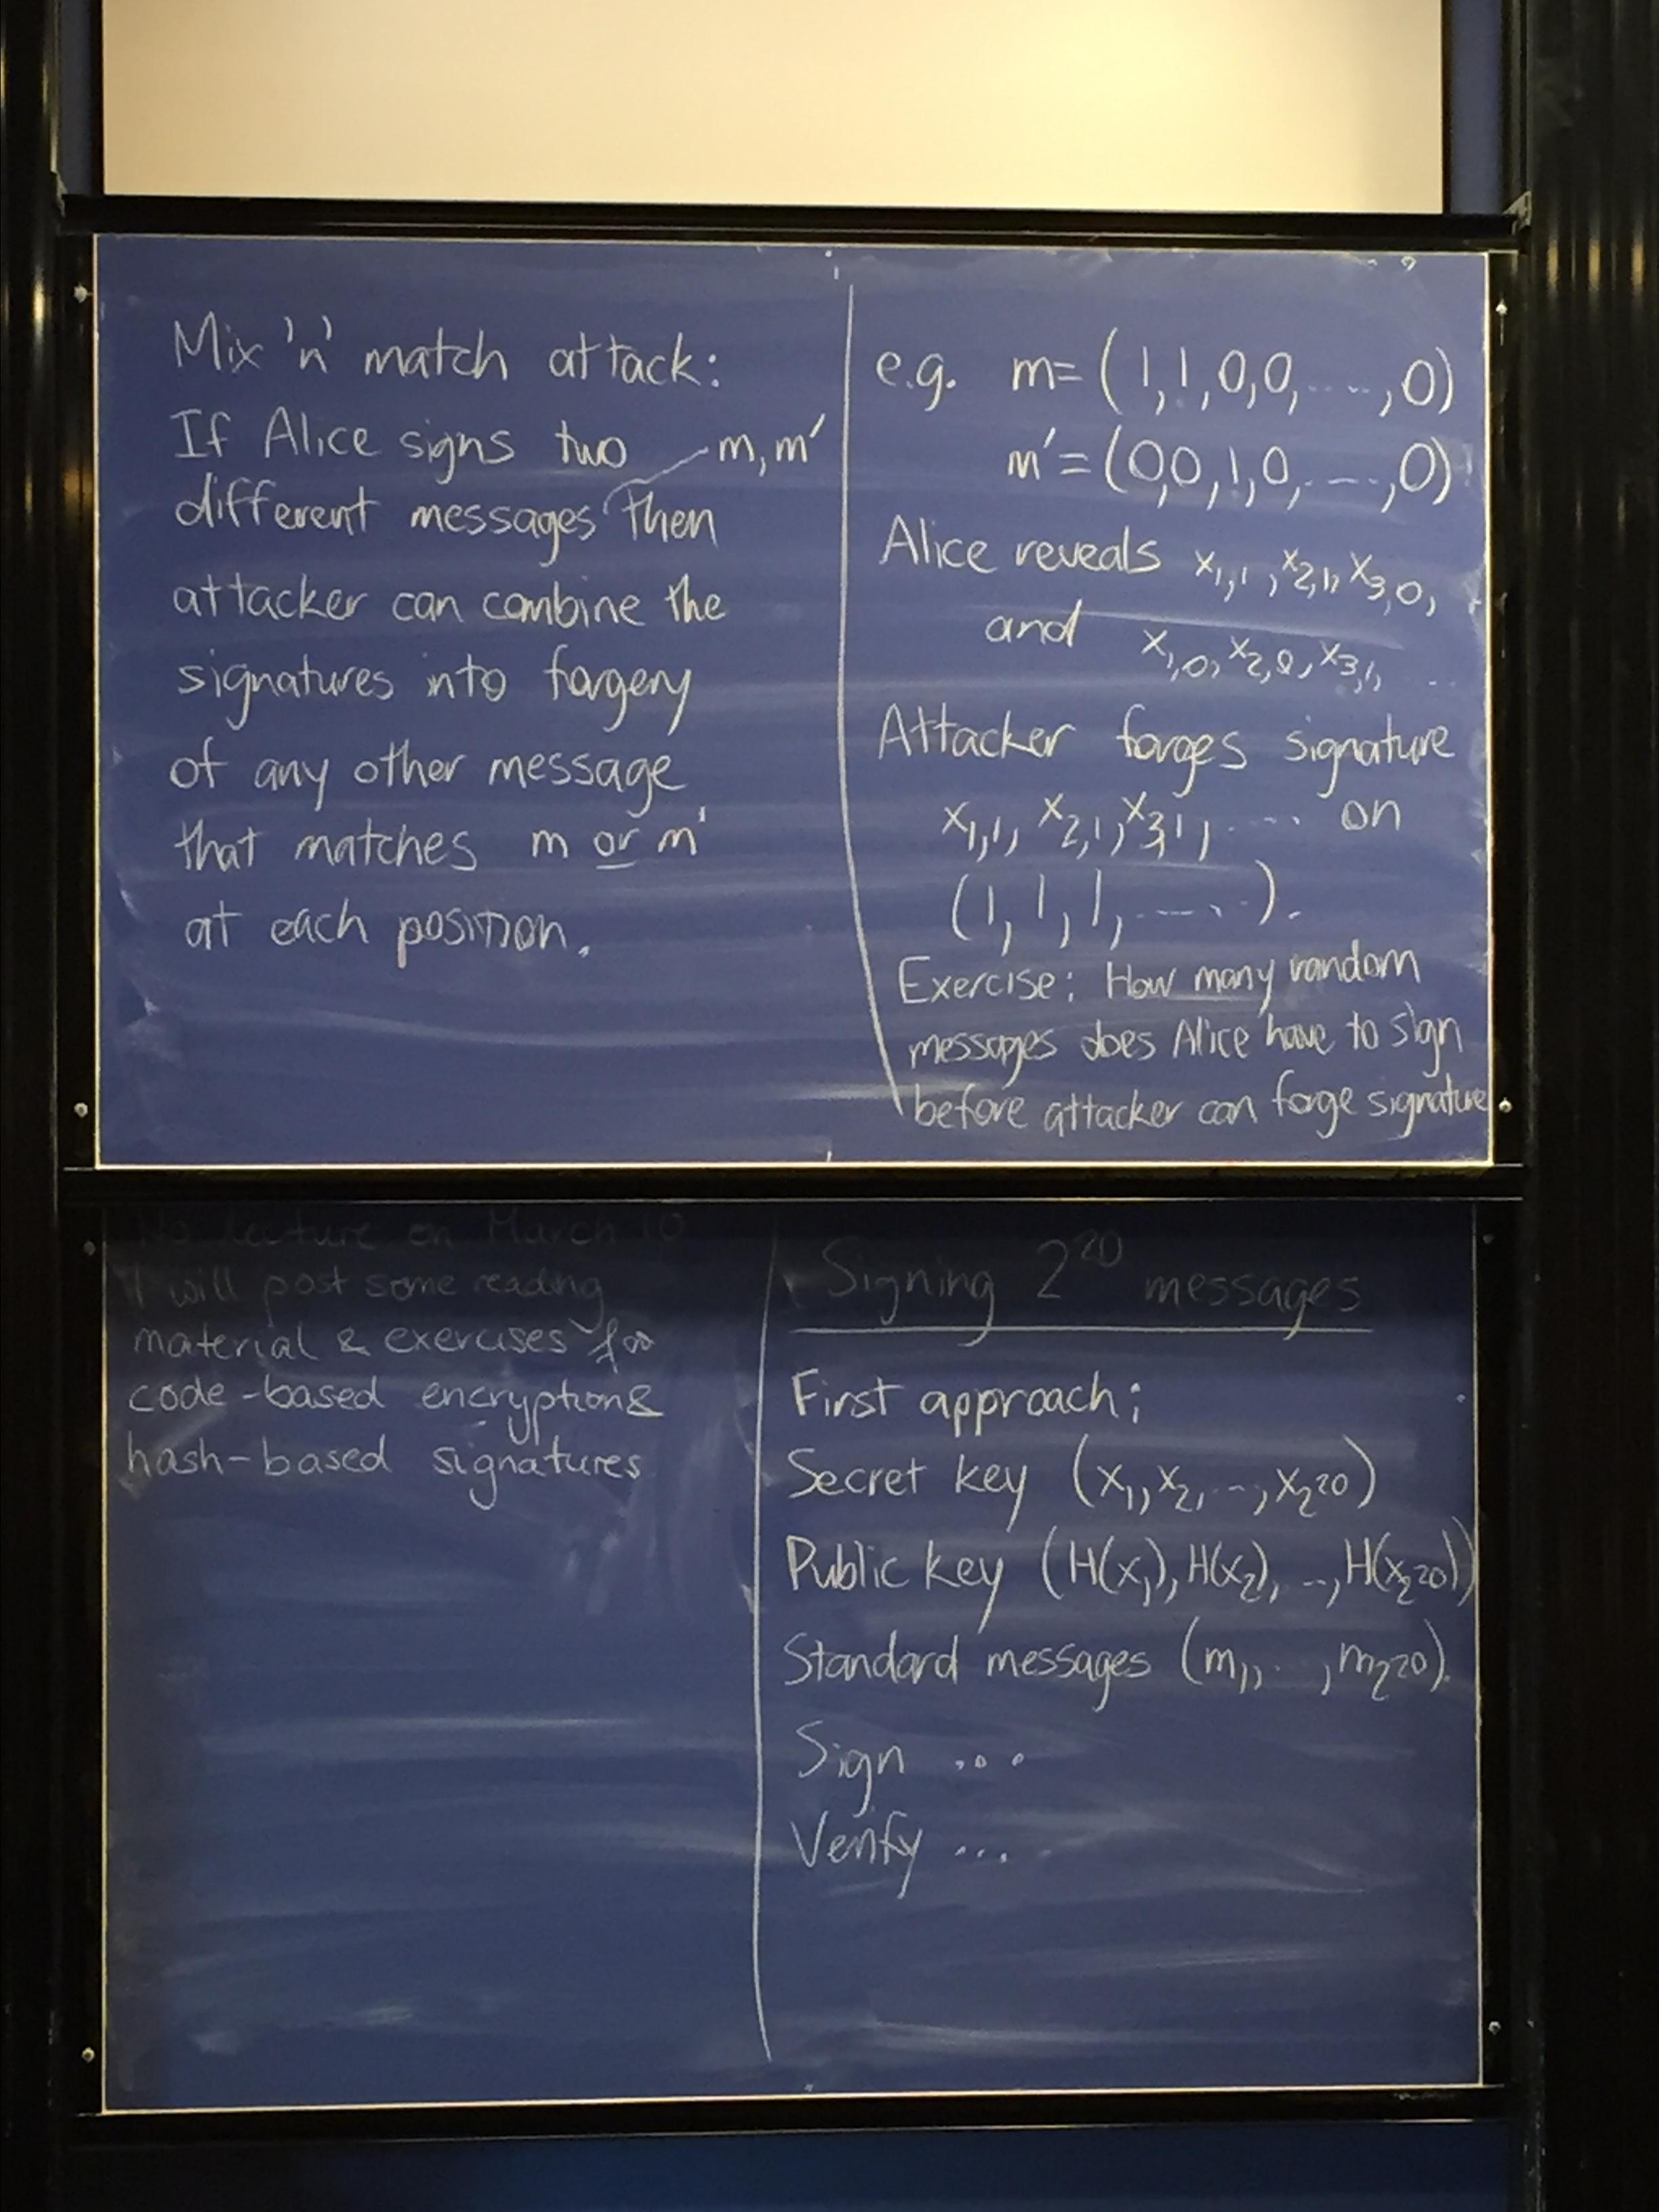 Mix 'n' match attack:
If Alice signs two m, m'
different messages then
attacker can combine the
signatures into forgery
of any other message
that matches m or m'
at each position.
e.g. m=(1,1,0,0,...,0)
m'=(0,0,1,0,...,0)
Alice reveals x₁,₁, x₂,₁, x₃,₀,
and x₁,₀, x₂,₀, x₃,₁, ..
Attacker forges signature
x₁,₁, x₂,₁, x₃,₁, .... on
(1,1,1,....).
Exercise: How many random
messages does Alice have to sign
before attacker can forge signature
No lecture on March 10
I will post some reading
material & exercises for
code-based encryption &
hash-based signatures
Signing 2²⁰ messages
First approach:
Secret key (x₁, x₂, .., x₂20)
Public key (H(x₁), H(x₂), .., H(x₂20))
Standard messages (m₁, .., m₂20).
Sign ...
Verify ...